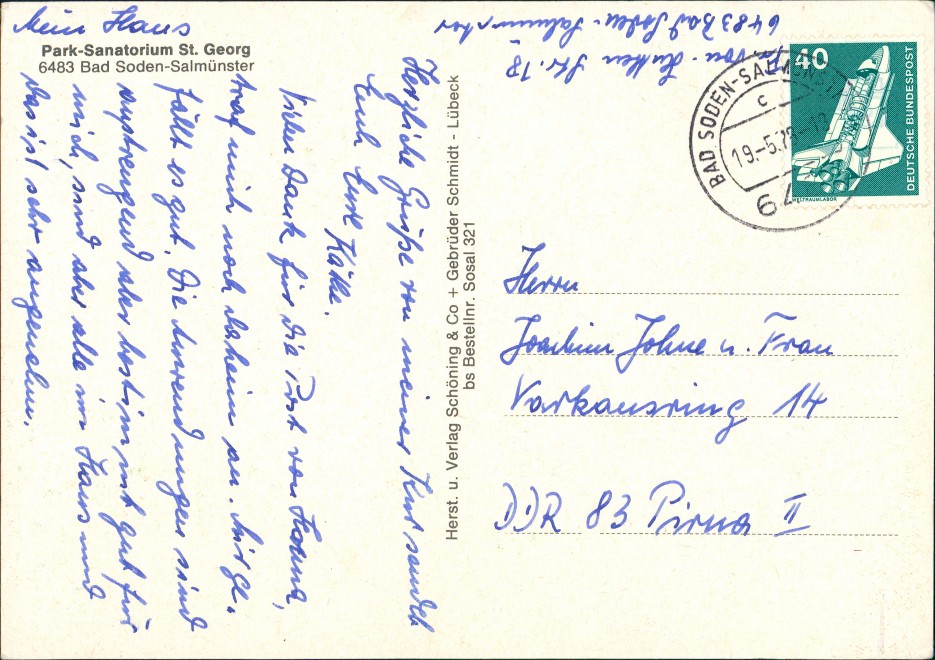 Mein Haus
Park-Sanatorium St. Georg
6483 Bad Soden-Salmünster
Str. 18
6483 Bad Soden-Salmünster
Herzliche Grüße von meiner Kur sendet
Euch Eure Käthe.
Vielen Dank für die Post von Hanna,
traf mich noch daheim an. Mir ge-
fällt es gut. Die Anwendungen sind
anstrengend aber bestimmt gut für
mich, sind aber alle im Haus und
das ist sehr angenehm.
Herst. u. Verlag Schöning & Co + Gebrüder Schmidt - Lübeck
bs Bestellnr. Sosal 321
40
DEUTSCHE BUNDESPOST
WELTRAUMLABOR
BAD SODEN-SALMÜNSTER
c
19.-5.
62
Herrn
Joachim Johne u. Frau
Varkausring 14
DDR 83 Pirna II